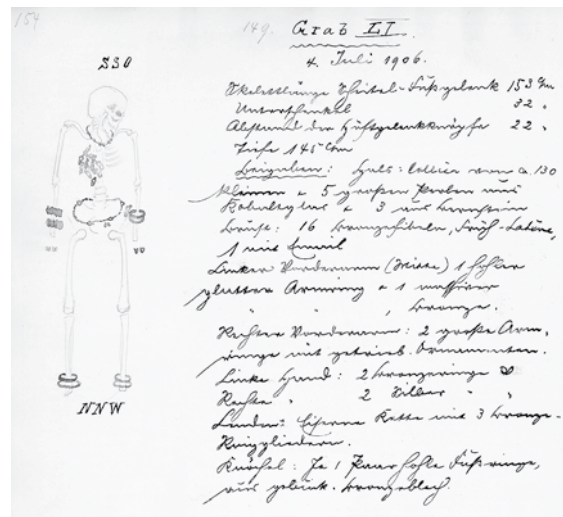 154
149. Grab LI.
4. Juli 1906.
SSO
Skelettlänge Scheitel-Fußgelenk 153 cm
Unterschenkel 32 "
Abstand der Hüftgelenkknöpfe 22 "
Tiefe 145 cm
Beigaben: Hals: Collier von ca. 130
kleinen & 5 großen Perlen aus
Kobaltglas & 3 aus Bernstein
Brust: 16 Bronzefibeln, Früh-Latène,
1 mit Email
Linker Vorderarm (Mitte) 1 hohler
glatter Armring & 1 massiver
" " , Bronze.
Rechter Vorderarm: 2 große Arm-
ringe mit getrieb. Ornamenten.
Linke Hand: 2 Bronzeringe
Rechte " 2 Silber " "
Lenden: Eiserne Kette mit 3 Bronze-
Knöchel: Je 1 Paar hohle Fußringe,
aus gebuck. Bronzeblech.
NNW